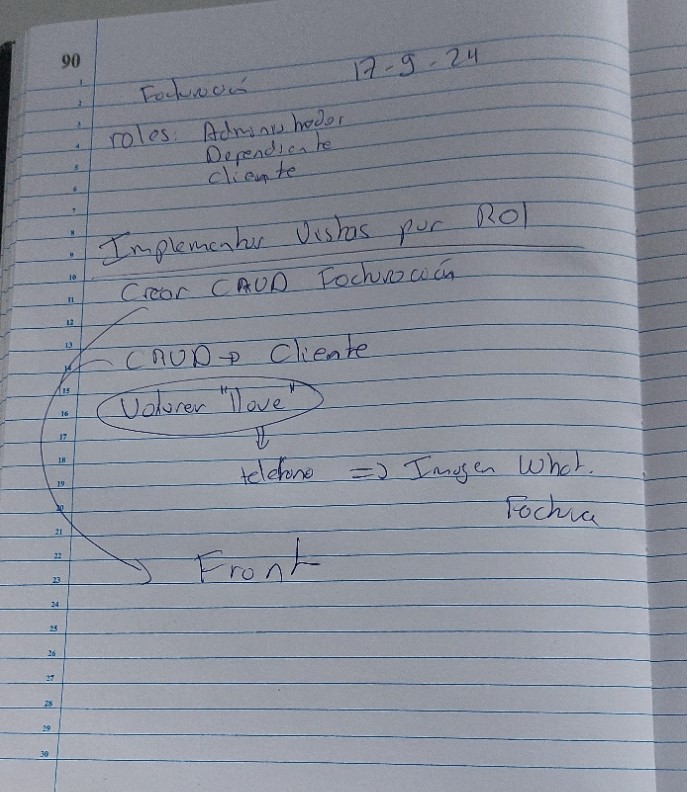 90
17-9-24
Facturación
roles: Administrador
Dependiente
Cliente
Implementar Vistas por ROl
Crear CRUD Facturación
CRUD → Cliente
"llave"
telefono => Imagen What.
Factura
Front
1
2
3
4
5
6
7
8
9
10
11
12
13
14
15
16
17
18
19
20
21
22
23
24
25
26
27
28
29
30